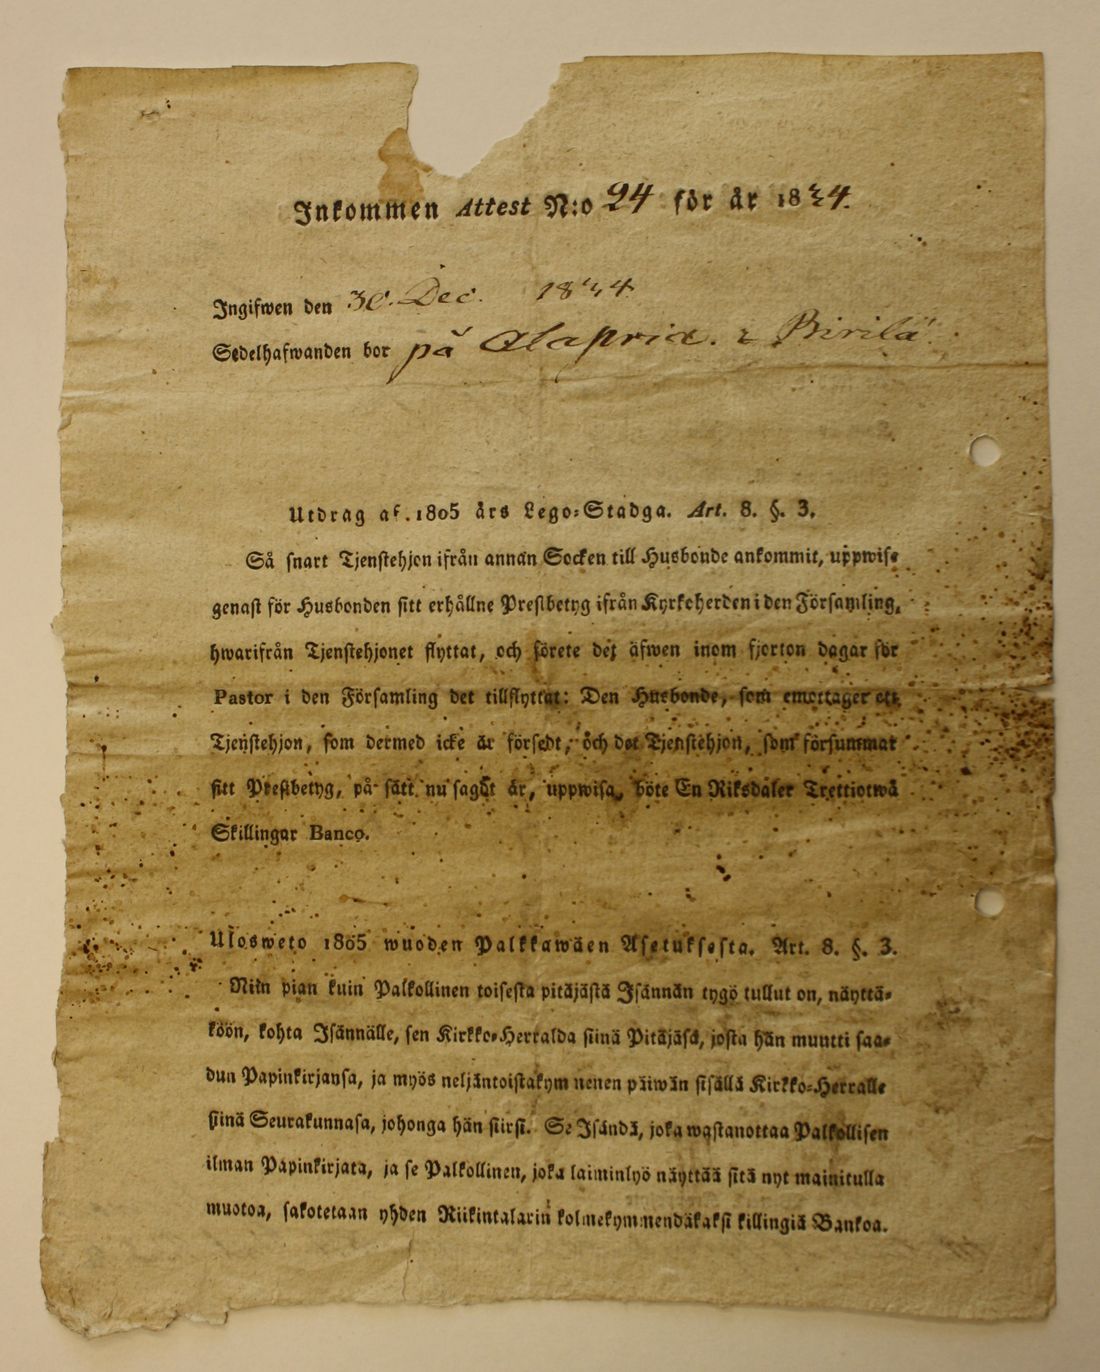 Inkommen Attest N:o 24 för år 1834.
Ingifwen den 30. Dec. 1834
Sedelhafwanden bor på Alapria. Pirilä.
Utdrag af. 1805 års Lego-Stadga. Art. 8. §. 3.
Så snart Tjenstehjon ifrån annan Socken till Husbonde ankommit, uppwise
genast för Husbonden sitt erhållne Prestbetyg ifrån Kyrkoherden i den Församling,
hwarifrån Tjenstehjonet flyttat, och förete det äfwen inom fjorton dagar för
Pastor i den Församling det tillflyttat: Den Husbonde, som emottager ett
Tjenstehjon, som dermed icke är försedt, och det Tjenstehjon, som försummar
sitt Prestbetyg, på sätt nu sagdt är, uppwisa, böte En Riksdaler Trettiotwå
Skillingar Banco.
Ulosweto 1805 wuoden Palkkawäen Asetuksesta. Art. 8. §. 3.
Niin pian kuin Palkollinen toisesta pitäjästä Isännän tygö tullut on, näyttä-
köön, kohta Isännälle, sen Kirkko-Herralda siinä Pitäjäsä, josta hän muutti saa-
dun Papinkirjansa, ja myös neljäntoistakymmenen päiwän sisällä Kirkko-Herralle
siinä Seurakunnasa, johonga hän siirsi. Se Isändä, joka wastanottaa Palkollisen
ilman Papinkirjata, ja se Palkollinen, joka laiminlyö näyttää sitä nyt mainitulla
muotoa, sakotetaan yhden Riikintalarin kolmekymmendäkaksi killingiä Bankoa.